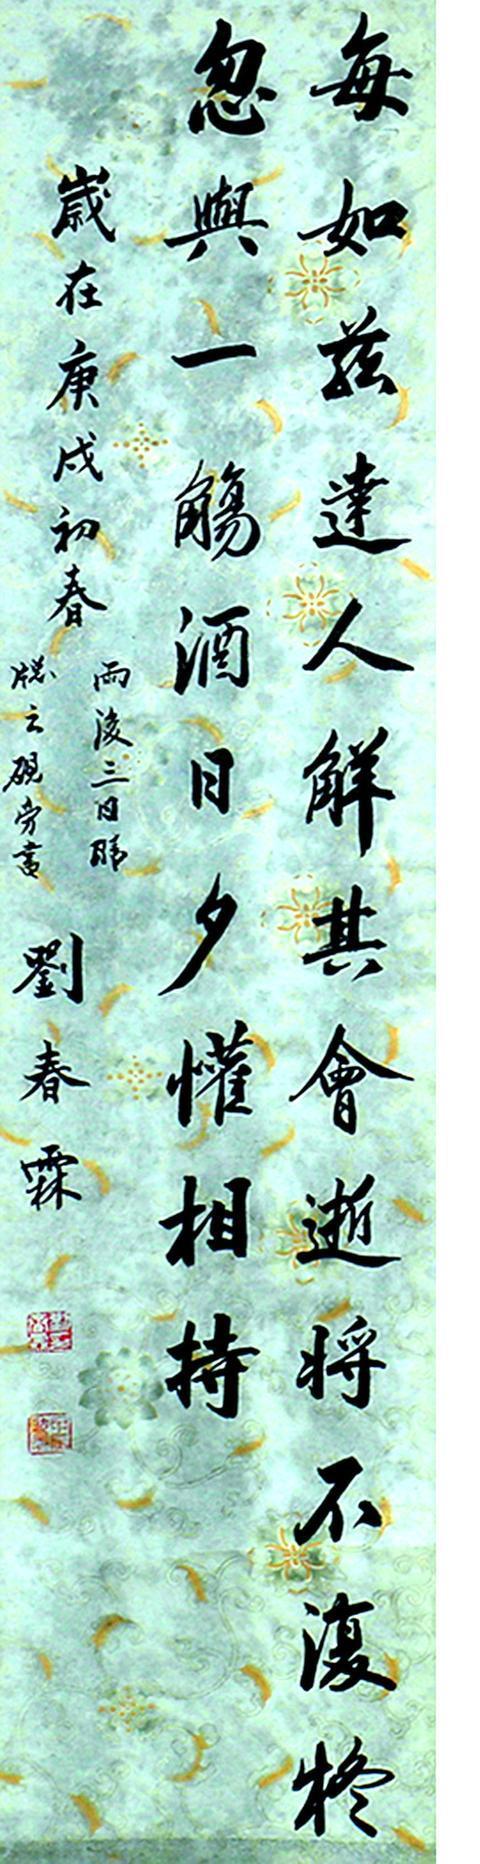 每如茲達人解其會逝将不復疑
忽與一觴酒日夕懽相持
歲在庚戌初春
雨後三日晴
牕之硯旁書
劉春霖